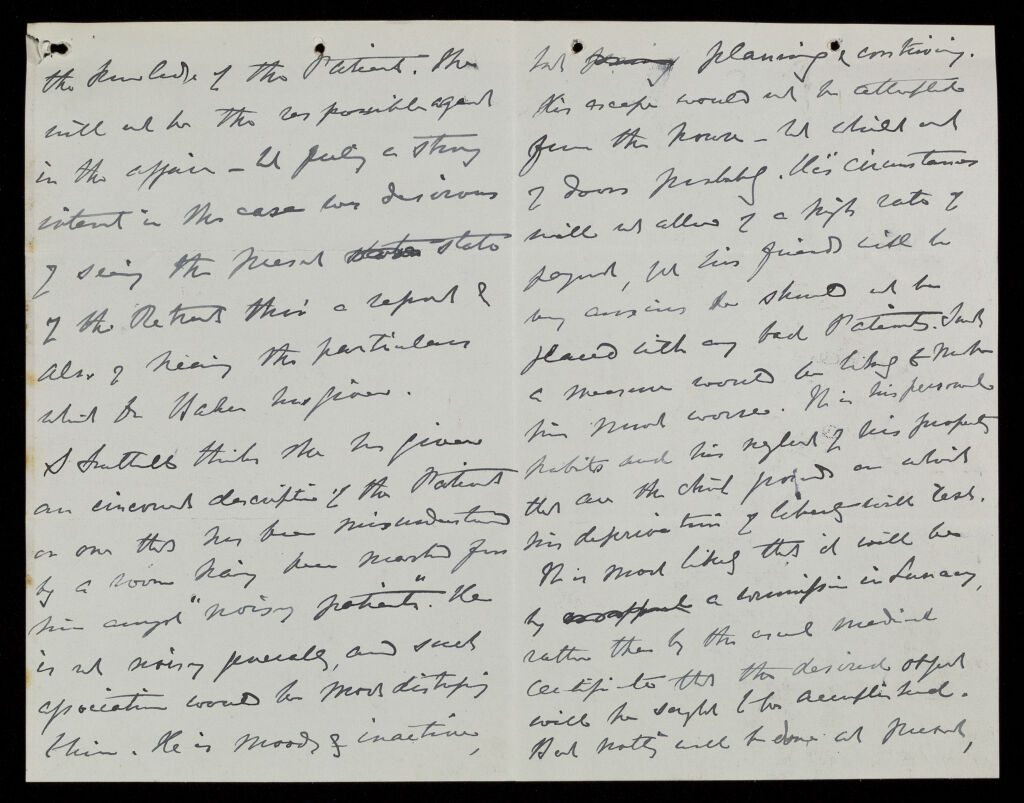 the knowledge of the Patient. She
will not be the responsible agent
in the affair – but feeling a strong
interest in the case was desirous
of seeing the present state
of the Retreat thro' a report &
also of hearing the particulars
which Dr Baker has given.
S thinks she has given
an incorrect description of the Patient
or one that has been misunderstood
by a room having been marked for
him amongst "noisy patients". He
is not noisy generally, and such
association would be most distressing
to him. He is moody & inactive,
but planning & contriving.
His escape would not be attempted
from the house – but whilst out
of doors probably. His circumstances
will not allow of a high rate of
payment, yet his friends will be
very anxious he should not be
placed with any bad Patients. Such
a measure would be likely to make
him much worse. It is his personal
habits and his neglect of his property
that are the chief grounds on which
his deprivation of liberty will rest.
It is most likely that it will be
by a commission in Lunacy,
rather than by the usual medical
certificates that the desired object
will be sought to be accomplished.
But nothing will be done at present,